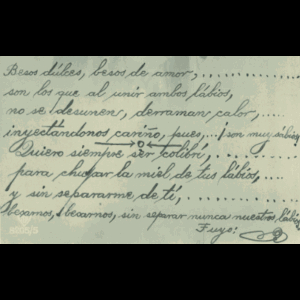 Besos dúlces, besos de amor, ........
son los que al unir ambos lábios,
no se/desunen, derraman calor, ....
inyectándonos cariño, pues,.../son muy sábios
Quiero siempre ser colibrí, .......
para chupar la miel de tus lábios, ....
y sin separarme de tí, .........
besarnos, besarnos, sin separar nunca nuestros lábios
Tuyo: